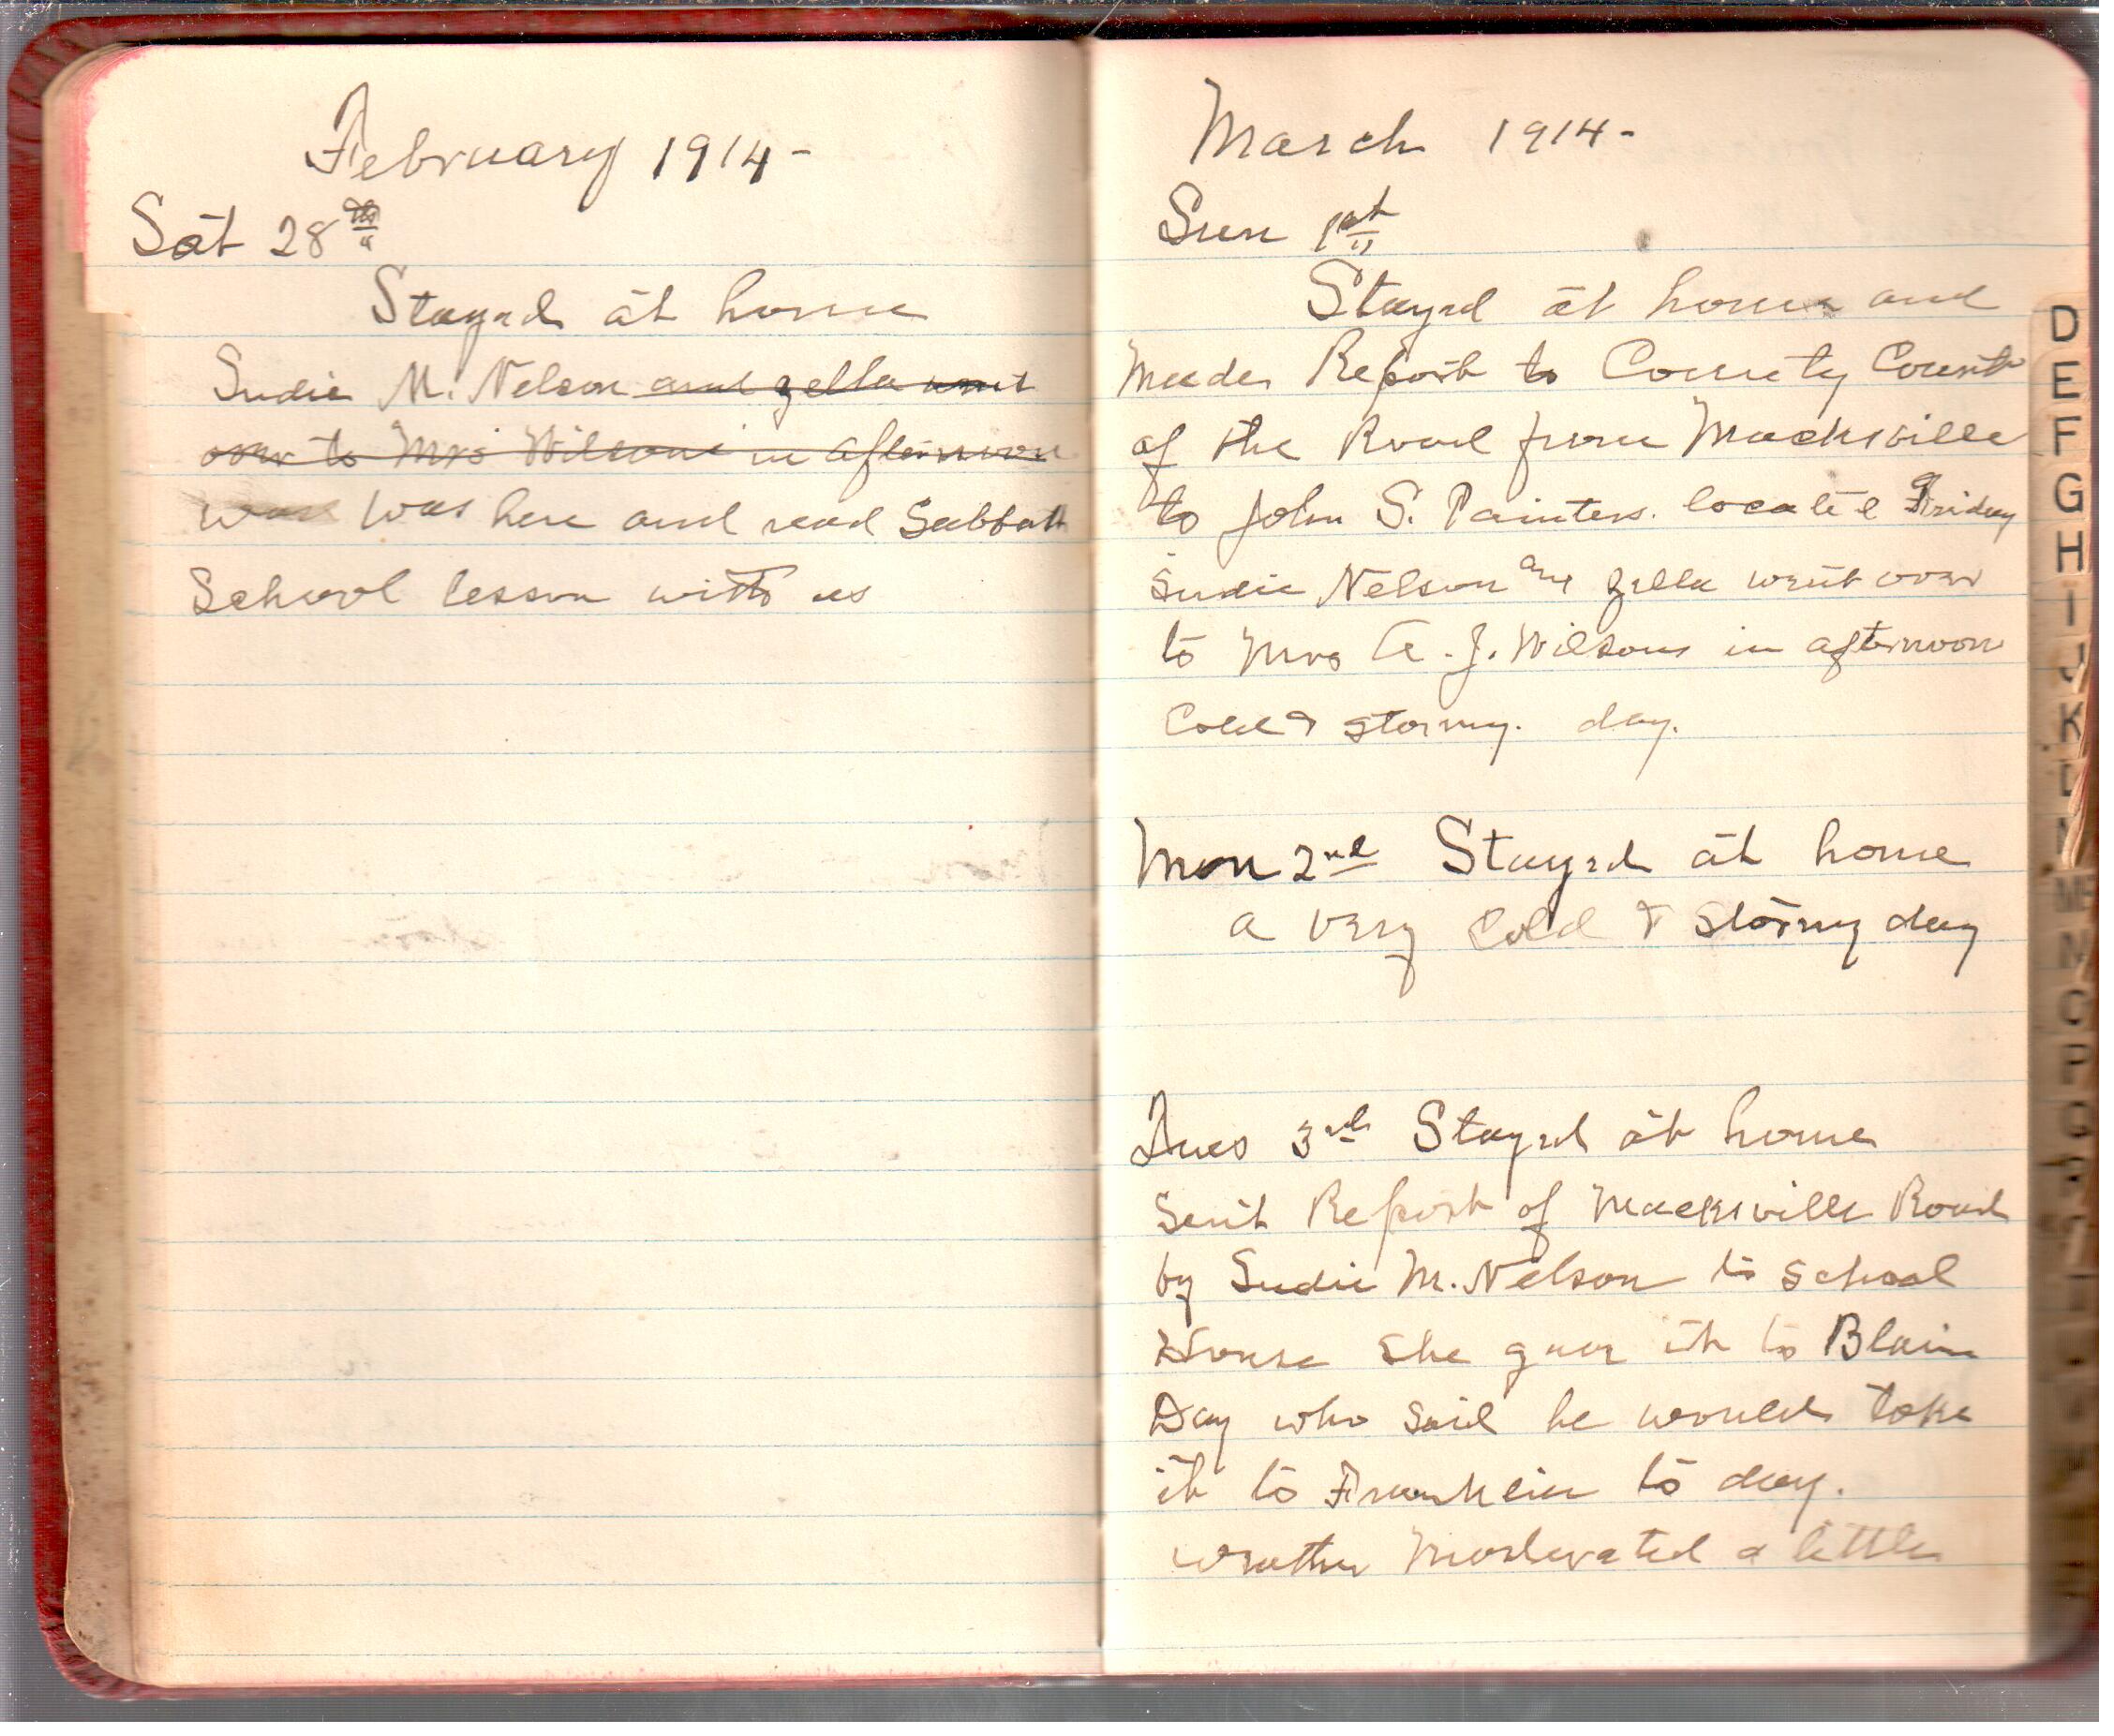 February 1914-
Sat 28th
Stayed at home
Sudie M. Nelson and Zella went
over to Mrs Wilsons in afternoon
was was here and read Sabbath
School lesson with us
March 1914-
Sun 1st
Stayed at home and
Made Report to County Court
of the Road from Macksville
to John S. Painters. located Friday
Sudie Nelson and Zella went over
to Mrs A. J. Wilsons in afternoon
Cold & stormy. day.
Mon 2nd Stayed at home
a very Cold & stormy day
Tues 3rd Stayed at home
Sent Report of Macksville Road
by Sudie M. Nelson to school
House she gave it to Blain
Day who said he would take
it to Franklin to day.
weather Moderated a little
D
E
F
G
H
I
J
K
M
N
O
P
Q
R